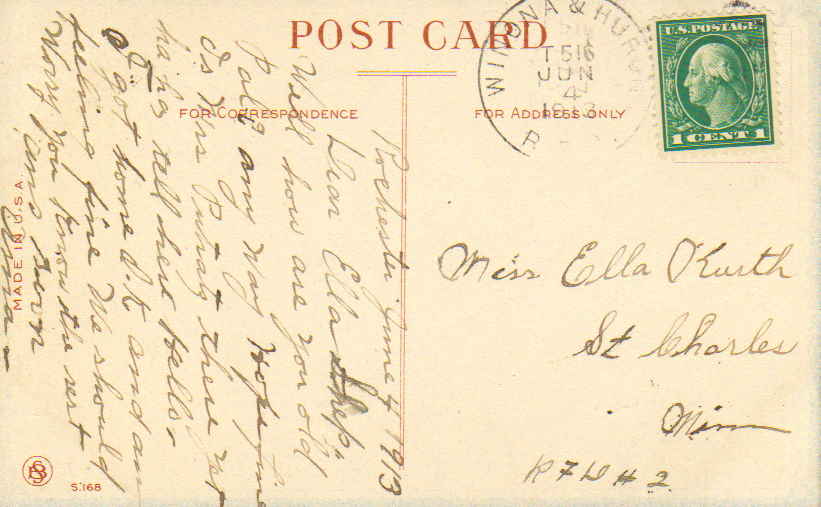 POST CARD
FOR CORRESPONDENCE
FOR ADDRESS ONLY
WINONA & HURON
T516
JUN
4
1913
R.
U.S. POSTAGE
1 CENT 1
Rochester June 4 1913
Dear Ella
Well how are you old
Pal any way Hope fine
Is Mrs there yet
ha ha tell her Hello.
I got home O.K and am
feeling fine We should
Worry you know the rest
ans soon
Miss Ella Kurth
St Charles
Minn
R F D # 2
MADE IN U.S.A.
S.168